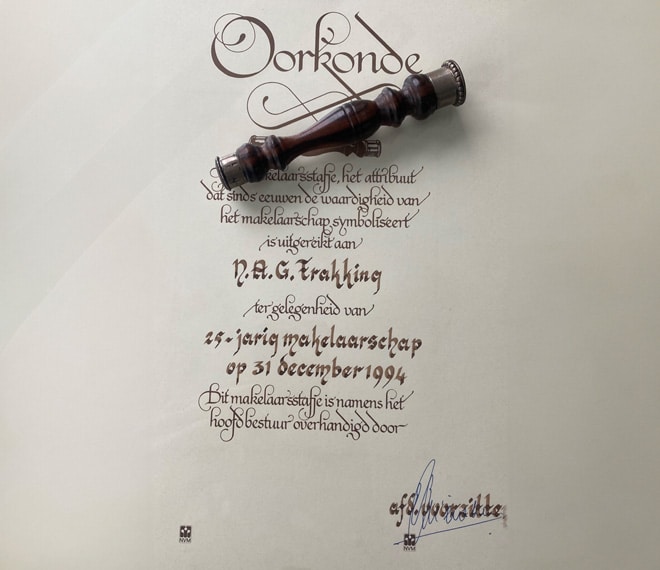 Oorkonde
makelaarsstaffe, het attribuut
dat sinds eeuwen de waardigheid van
het makelaarschap symboliseert
is uitgereikt aan
N.A.G. Trakking
ter gelegenheid van
25-jarig makelaarschap
op 31 december 1994
Dit makelaarsstaffe is namens het
hoofdbestuur overhandigd door
afd. voorzitte
NVM
NVM